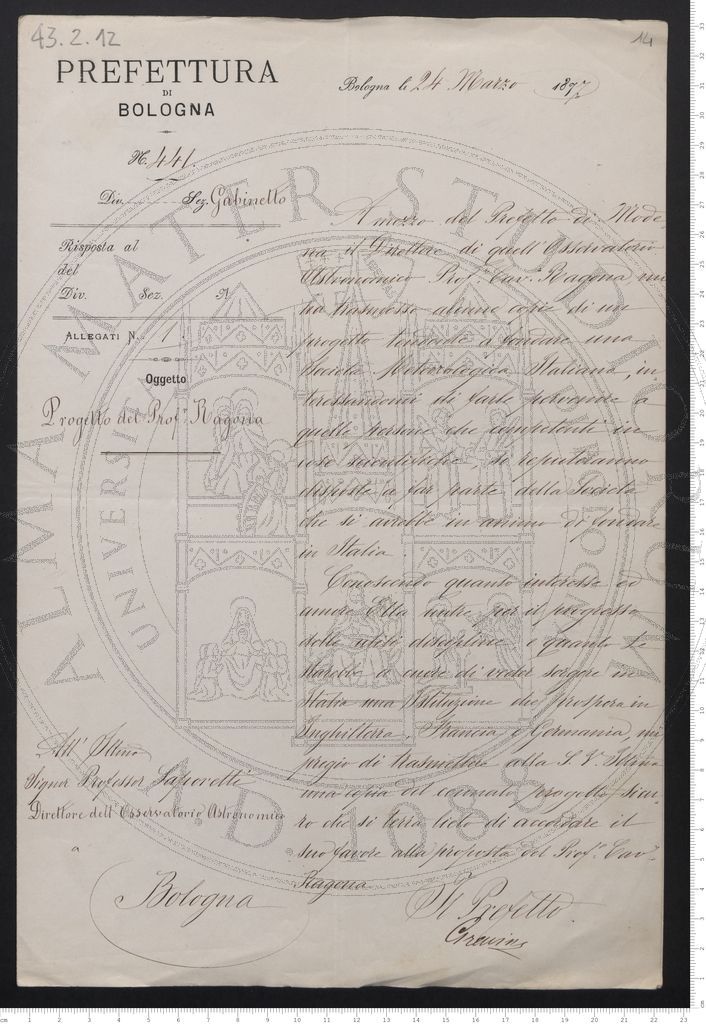 43.2.12
14
PREFETTURA
DI
BOLOGNA
Bologna li 24 Marzo 1877
N. 441.
Div. Sez. Gabinetto
Risposta al
del
Div. Sez. N.
ALLEGATI N. 1
Oggetto
Progetto del Prof. Ragona
A mezzo del Prefetto di Mode-
na il Direttore di quell'Osservatorio
Astronomico Prof. Cav. Ragona mi
ha trasmesso alcune copie di un
progetto tendente a fondare una
Società Meteorologica Italiana, in
teressandomi di farle pervenire a
quelle persone che competenti in
cose scientifiche, si reputeranno
disposte a far parte della Società
che si avrebbe in animo di fondare
in Italia.
Conoscendo quanto interesse ed
amore Ella nutre per il progresso
delle utili discipline e quanto Le
starebbe a cuore di veder sorgere in
Italia una Istituzione che prospera in
Inghilterra, Francia e Germania, mi
pregio di trasmettere alla S. V. Illma
una copia del cennato progetto, sicu-
ro che si terrà lieto di accordare il
suo favore alla proposta del Prof. Cav.
Ragona
Il Prefetto
Gravina
All' Illmo
Signor Professor Saporetti
Direttore dell'Osservatorio Astronomico
Bologna
ALMA MATER STUDIORUM
UNIVERSI
A.D. 1088